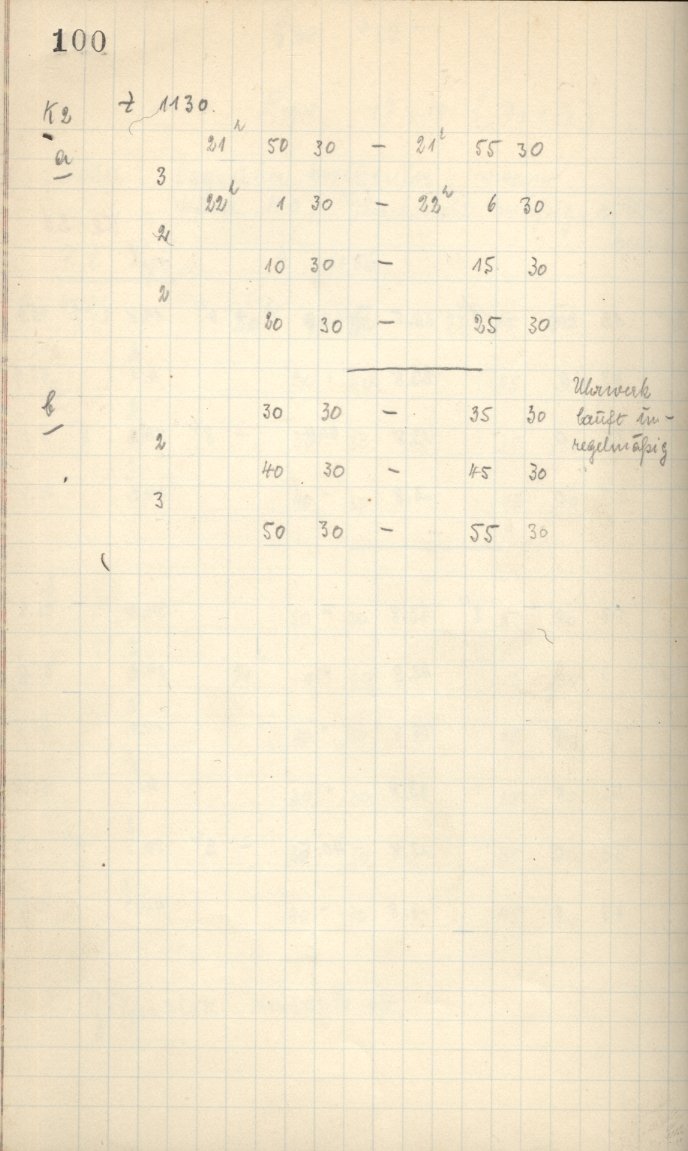 100
K2 Z 1130.
a 21h 50 30 – 21h 55 30
3
22h 1 30 – 22h 6 30
2
10 30 – 15 30
2
20 30 – 25 30
b 30 30 – 35 30 Uhrwerk
läuft un-
regelmäßig
2
40 30 – 45 30
3
50 30 – 55 30